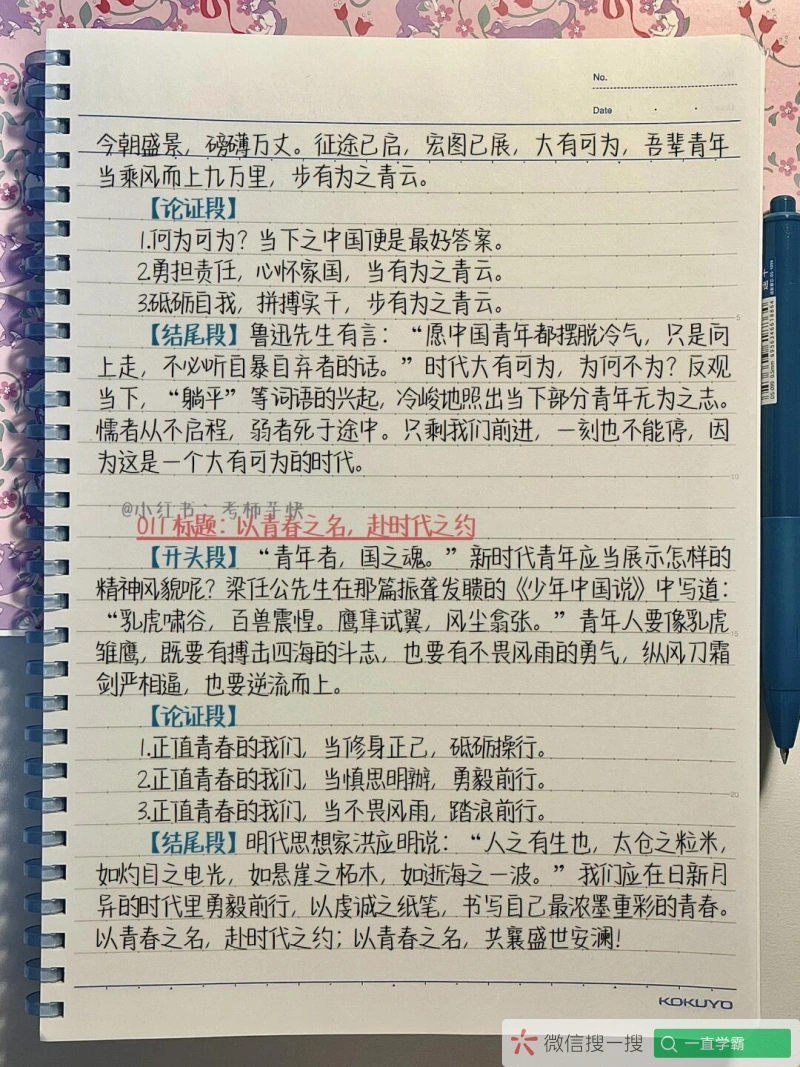 No.
Date
今朝盛景，磅礴万丈。征途已启，宏图已展，大有可为，吾辈青年
当乘风而上九万里，步有为之青云。
【论证段】
1.何为可为？当下之中国便是最好答案。
2.勇担责任，心怀家国，当有为之青云。
3.砥砺自我，拼搏实干，步有为之青云。
【结尾段】鲁迅先生有言：“愿中国青年都摆脱冷气，只是向
上走，不必听自暴自弃者的话。”时代大有可为，为何不为？反观
当下，“躺平”等词语的兴起，冷峻地照出当下部分青年无为之志。
懦者从不启程，弱者死于途中。只剩我们前进，一刻也不能停，因
为这是一个大有可为的时代。
@小红书
011标题：以青春之名，赴时代之约
【开头段】“青年者，国之魂。”新时代青年应当展示怎样的
精神风貌呢？梁任公先生在那篇振聋发聩的《少年中国说》中写道：
“乳虎啸谷，百兽震惶。鹰隼试翼，风尘翕张。”青年人要像乳虎
雏鹰，既要有搏击四海的斗志，也要有不畏风雨的勇气，纵风刀霜
剑严相逼，也要逆流而上。
【论证段】
1.正值青春的我们，当修身正己，砥砺操行。
2.正值青春的我们，当慎思明辨，勇毅前行。
3.正值青春的我们，当不畏风雨，踏浪前行。
【结尾段】明代思想家洪应明说：“人之有生也，太仓之粒米，
如灼目之电光，如悬崖之朽木，如逝海之一波。”我们应在日新月
异的时代里勇毅前行，以虔诚之纸笔，书写自己最浓墨重彩的青春。
以青春之名，赴时代之约；以青春之名，共襄盛世安澜！
KOKUYO
微信搜一搜
一直学霸